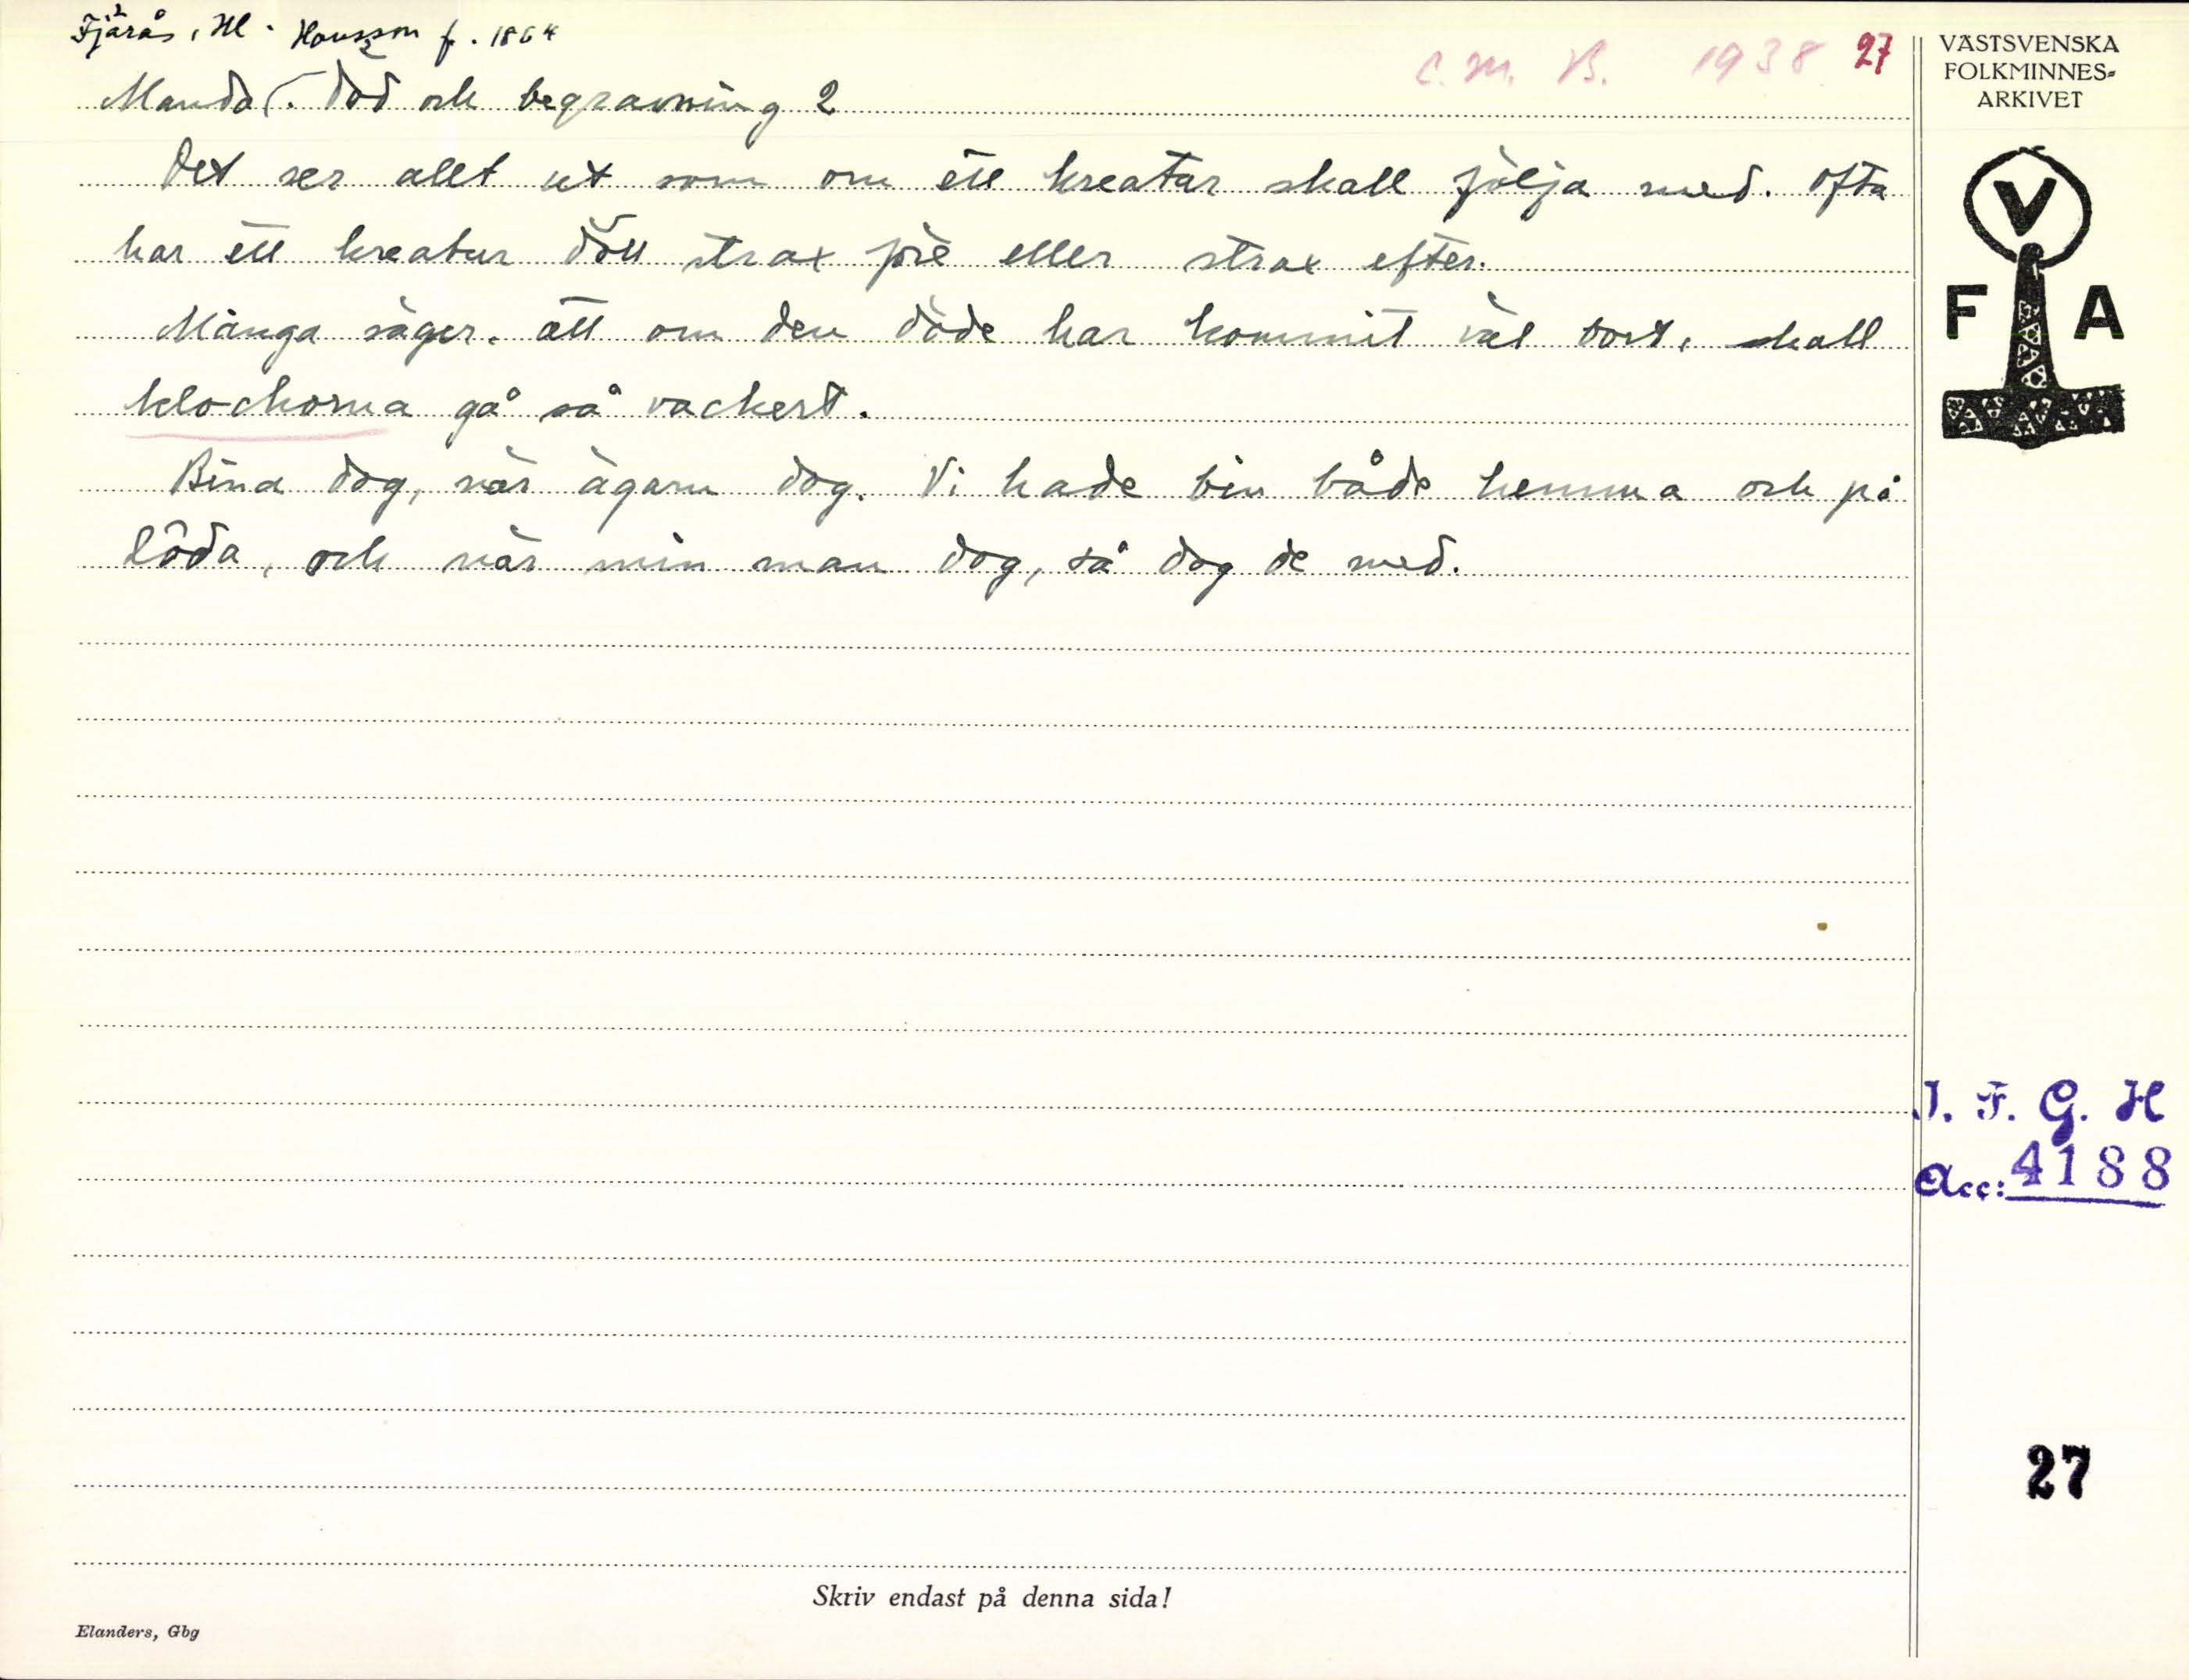 Fjärås, Hl. Hansson f. 1864
C. M. B. 1938 27
Manda (. Död och begravning 2
Det ser allt ut som om ett kreatur skall följa med. Ofta
har ett kreatur dött strax före eller strax efter.
Många säger, att om den döde har kommit väl bort, skall
klockorna gå så vackert.
Bina dog, när ägarn dog. Vi hade bin både hemma och på
Röda, och när min man dog, så dog de med.
VÄSTSVENSKA
FOLKMINNES-
ARKIVET
V
F A
I. F. G. H
Acc: 4188
27
Skriv endast på denna sida!
Elanders, Gbg